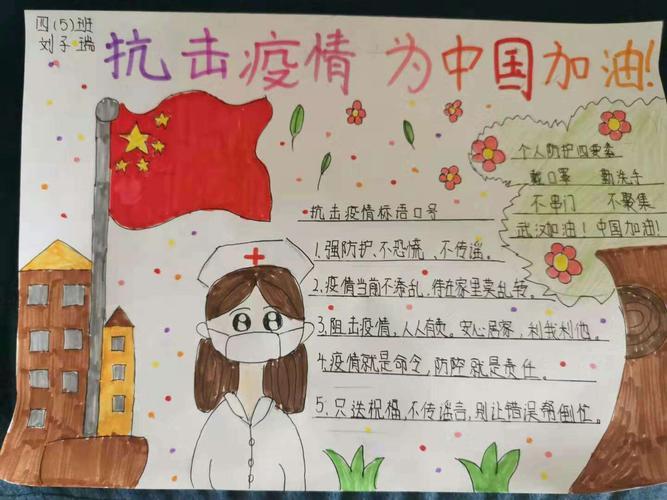 四(5)班
刘子瑞
抗击疫情 为中国加油!
个人防护四要素
戴口罩 勤洗手
不串门 不聚集
武汉加油!中国加油!
抗击疫情标语口号
1.强防护、不恐慌、不传谣。
2.疫情当前不添乱,待在家里莫乱转。
3.阻击疫情,人人有责。安心居家,利我利他。
4.疫情就是命令,防疫就是责任。
5.只送祝福,不传谣言,别让错误帮倒忙。